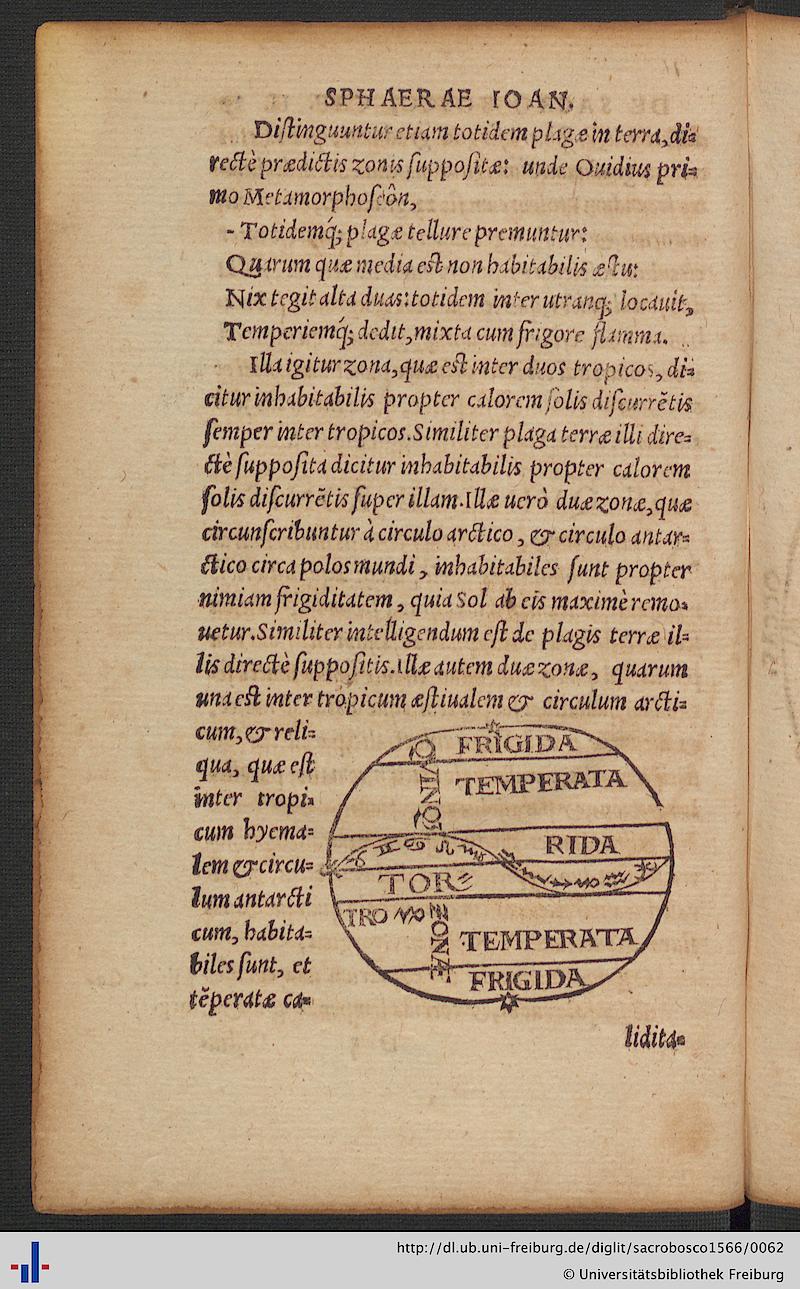 SPHAERAE IOAN.
Diſtinguuntur etiam totidem plagæ in terra, di=
rectè prædictis zonis ſuppoſitæ: unde Ouidius pri=
mo Metamorphoſeôn,
- Totidemq́; plagæ tellure premuntur:
Quarum quæ media est non habitabilis æſtu:
Nix tegit alta duas: totidem inter utranq; locauit,
Temperiemq́; dedit, mixta cum frigore flamma.
Illa igitur zona, quæ eſt inter duos tropicos, di=
citur inhabitabilis propter calorem ſolis diſcurrẽtis
ſemper inter tropicos. Similiter plaga terræ illi dire=
ctè ſuppoſita dicitur inhabitabilis propter calorem
ſolis diſcurrẽtis ſuper illam. Illæ uerò duæ zonæ, quæ
circunſcribuntur à circulo arctico, & circulo antar=
ctico circa polos mundi, inhabitabiles ſunt propter
nimiam frigiditatem, quia Sol ab eis maximè remo=
uetur. Similiter intelligendum eſt de plagis terræ il=
lis directè ſuppoſitis. Illæ autem duæ zonæ, quarum
una eſt inter tropicum æſtiualem & circulum arcti=
cum, & reli=
qua, quæ eſt
inter tropi=
cum hyema=
lem & circu=
lum antarcti
cum, habita=
biles ſunt, et
tẽperatæ ca=
FRIGIDA
TEMPERATA
RIDA
TOR
TRO
ZONAE
TEMPERATA
FRIGIDA
lidita=
http://dl.ub.uni-freiburg.de/diglit/sacrobosco1566/0062
© Universitätsbibliothek Freiburg